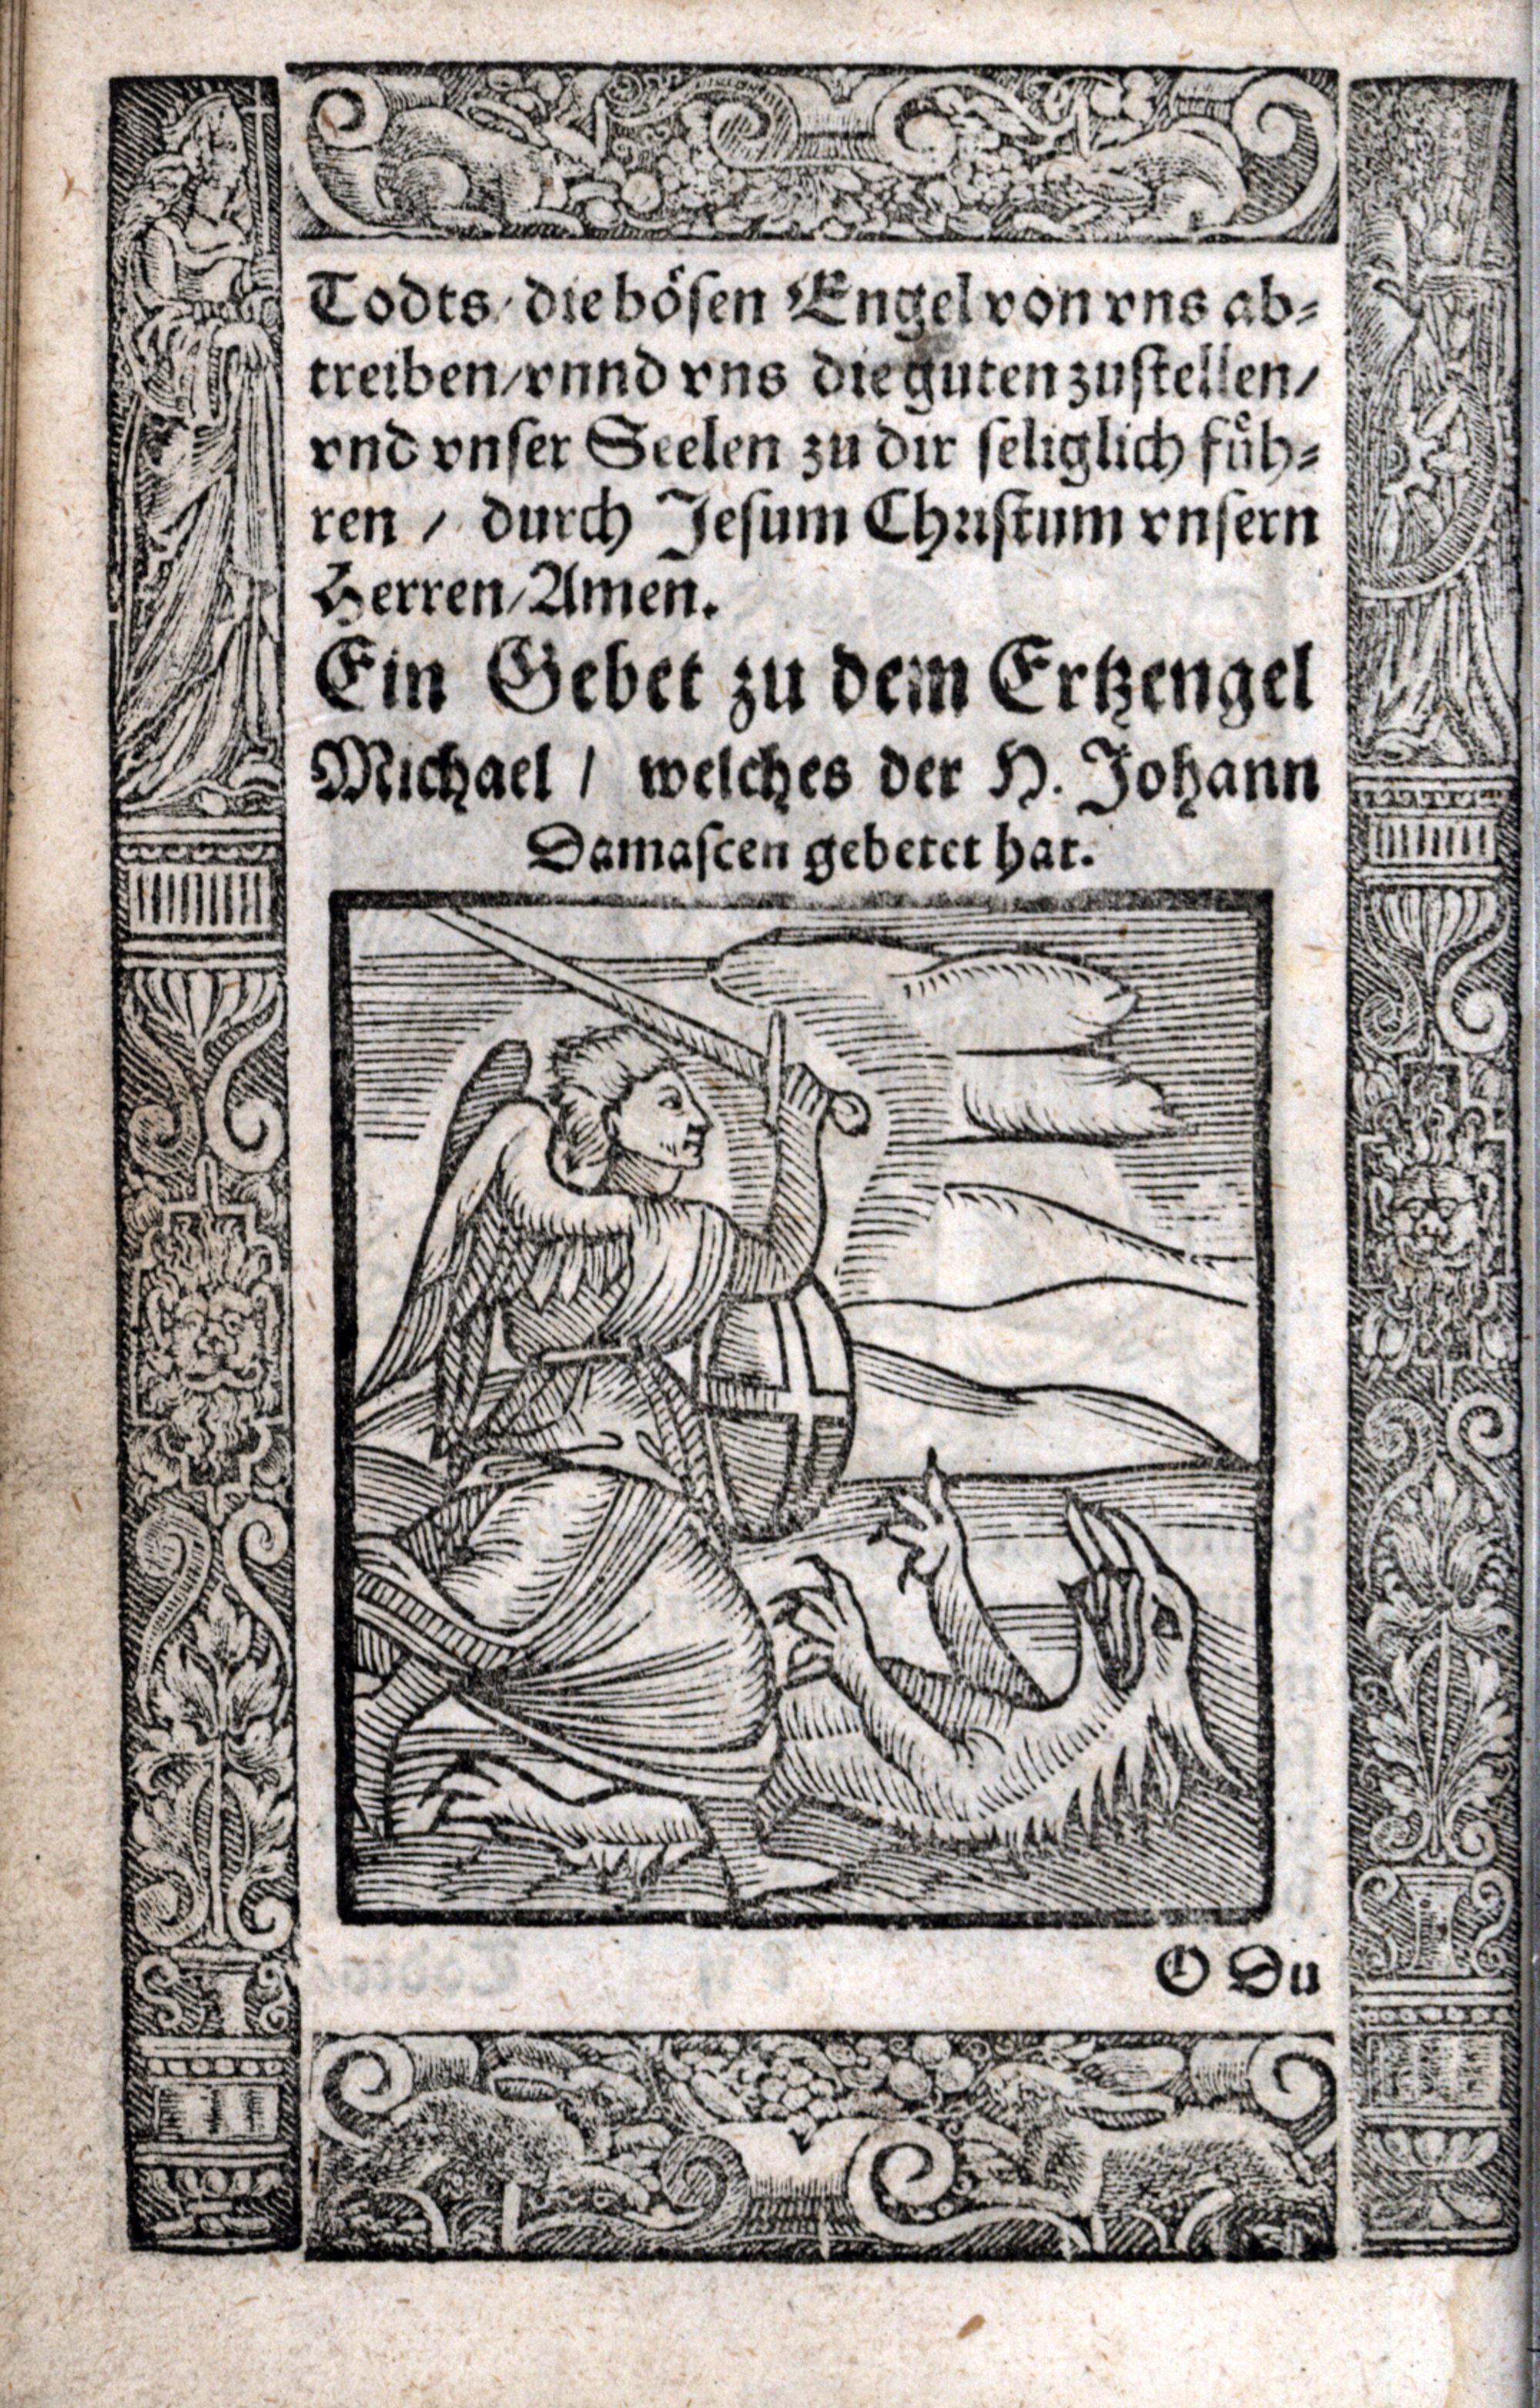 Todts / die bösen Engel von vns ab⸗
treiben / vnnd vns die guten zustellen /
vnd vnser Seelen zu dir seliglich füh⸗
ren / durch Jesum Christum vnsern
Herren / Amen.
Ein Gebet zu dem Ertzengel
Michael / welches der H. Johann
Damascen gebetet hat.
O Du